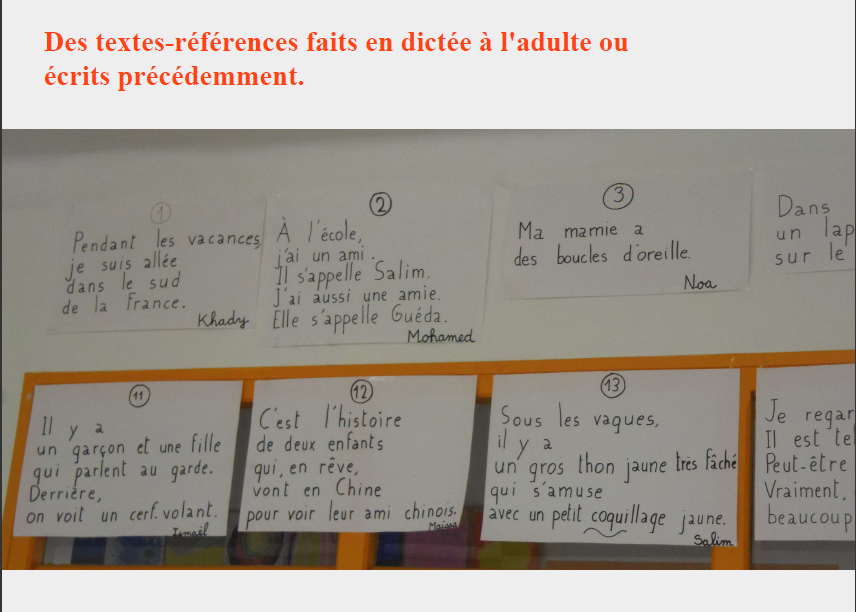 Des textes-références faits en dictée à l'adulte ou
écrits précédemment.
1
Pendant les vacances,
je suis allée
dans le sud
de la France.
Khady
2
À l'école,
j'ai un ami.
Il s'appelle Salim.
J'ai aussi une amie.
Elle s'appelle Guéda.
Mohamed
3
Ma mamie a
des boucles d'oreille.
Noa
Dans
un lap
sur le
11
Il y a
un garçon et une fille
qui parlent au garde.
Derrière,
on voit un cerf.volant.
Ismaël
12
C'est l'histoire
de deux enfants
qui, en rêve,
vont en Chine
pour voir leur ami chinois.
Maïssa
13
Sous les vagues,
il y a
un gros thon jaune très fâché
qui s'amuse
avec un petit coquillage jaune.
Salim
Je regar
Il est tel
Peut-être
Vraiment,
beaucoup